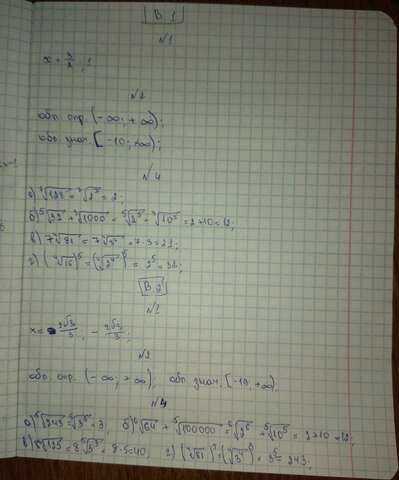 В 1
№1
x = 3/2; 1
№2
обл. опр. (-∞; +∞);
обл. знач. [-10; +∞);
№4
а) ⁷√128 = ⁷√2⁷ = 2;
б) ⁵√32 + ³√1000 = ⁵√2⁵ + ³√10³ = 2+10 = 12;
в) 7 ⁴√81 = 7 ⁴√3⁴ = 7·3 = 21;
г) (⁴√16)⁵ = (⁴√2⁴)⁵ = 2⁵ = 32;
В 2
№1
№2
обл. опр. (-∞; +∞); обл. знач. [-10; +∞).
№4
а) ⁵√243 = ⁵√3⁵ = 3; б) ⁶√64 + ⁵√100000 = ⁶√2⁶ + ⁵√10⁵ = 2+10 = 12;
в) 8 ³√125 = 8 ³√5³ = 8·5 = 40; г) (⁴√81)⁵ = (⁴√3⁴)⁵ = 3⁵ = 243;